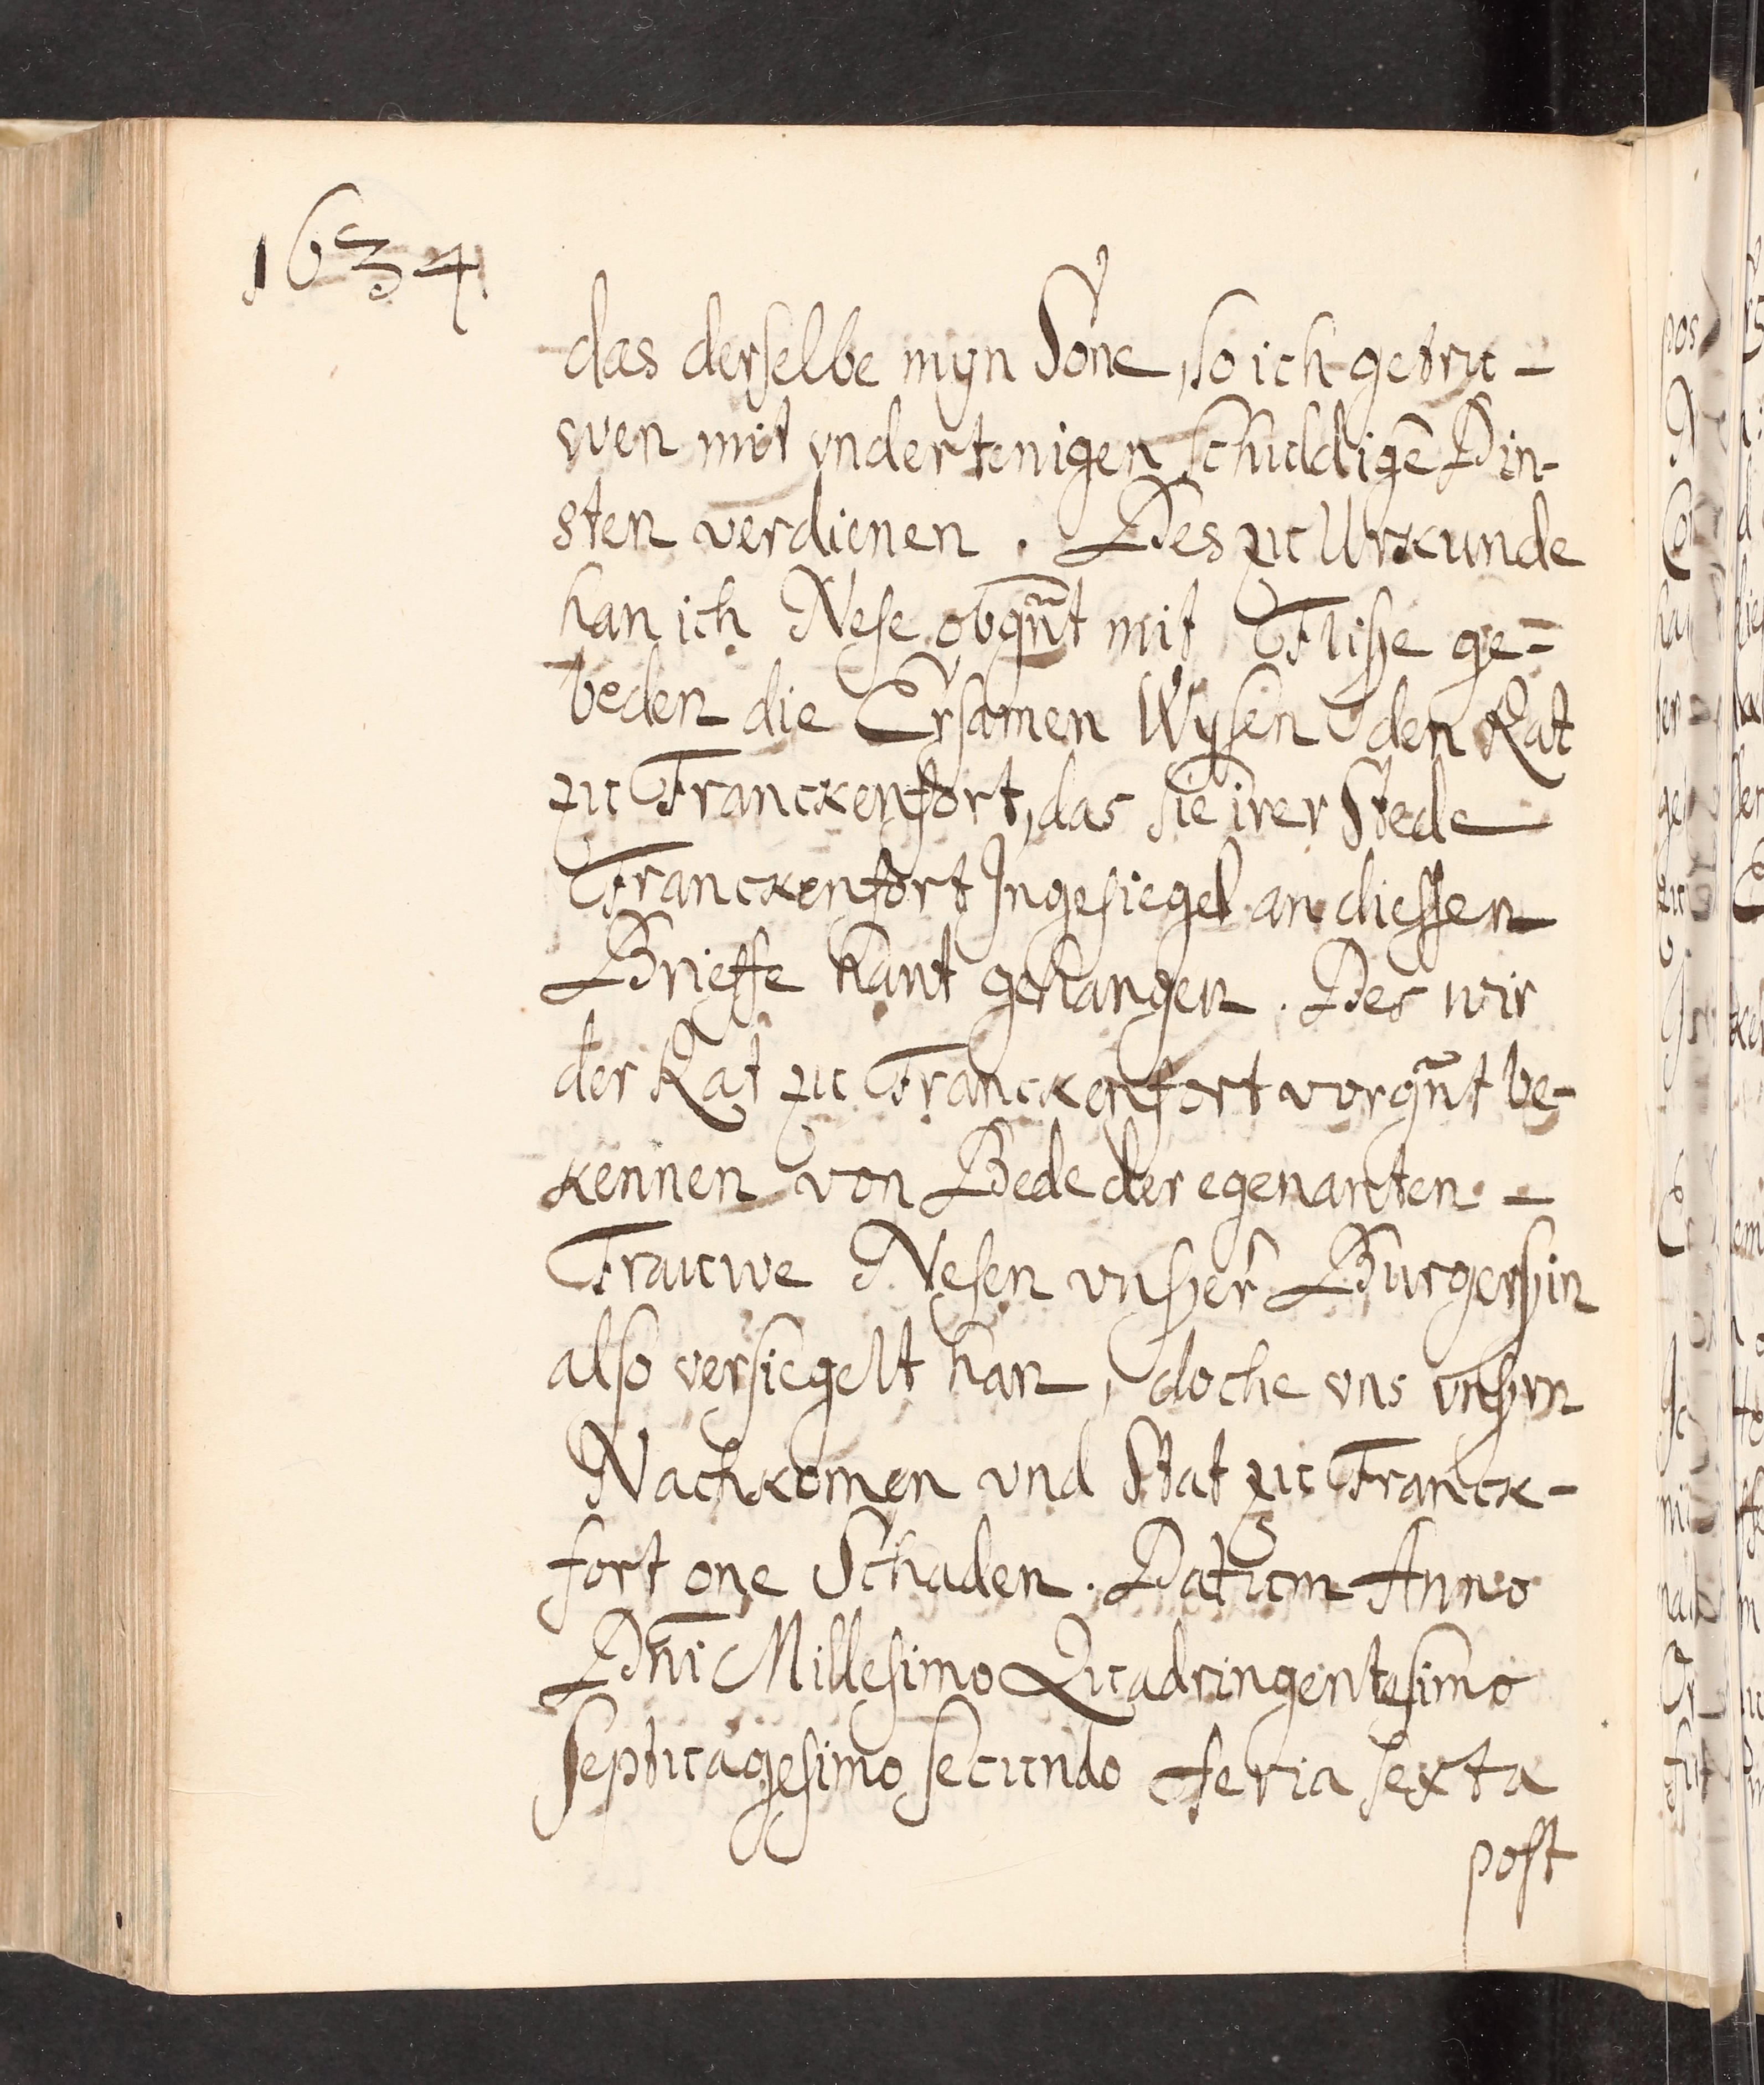 1634.
das derselbe myn Sone, so ich getru-
wen mit vndertenigen schuldigē Din-
sten verdienen. Des zu Urkunde
han ich Nese obgn̄t mit Flise ge=
beden die Ersamen Wysen den Rat
zu Franckenfort, das sie irer Stede
Franckenfort Ingesiegel an diessen
Brieffe hant gehangen. Des wir
der Rat zu Franckenfort vorgn̄t be-
kennen von Bede der egenanten -
Frauwe Nesen vnser Burgersin
also versiegelt han, doche vns vnsern
Nachkomen vnd Stat zu Franck-
fort one Schaden. Datum Anno
Dn̄i Millesimo Quadringentesimo
septuagesimo secundo feria sexta
post